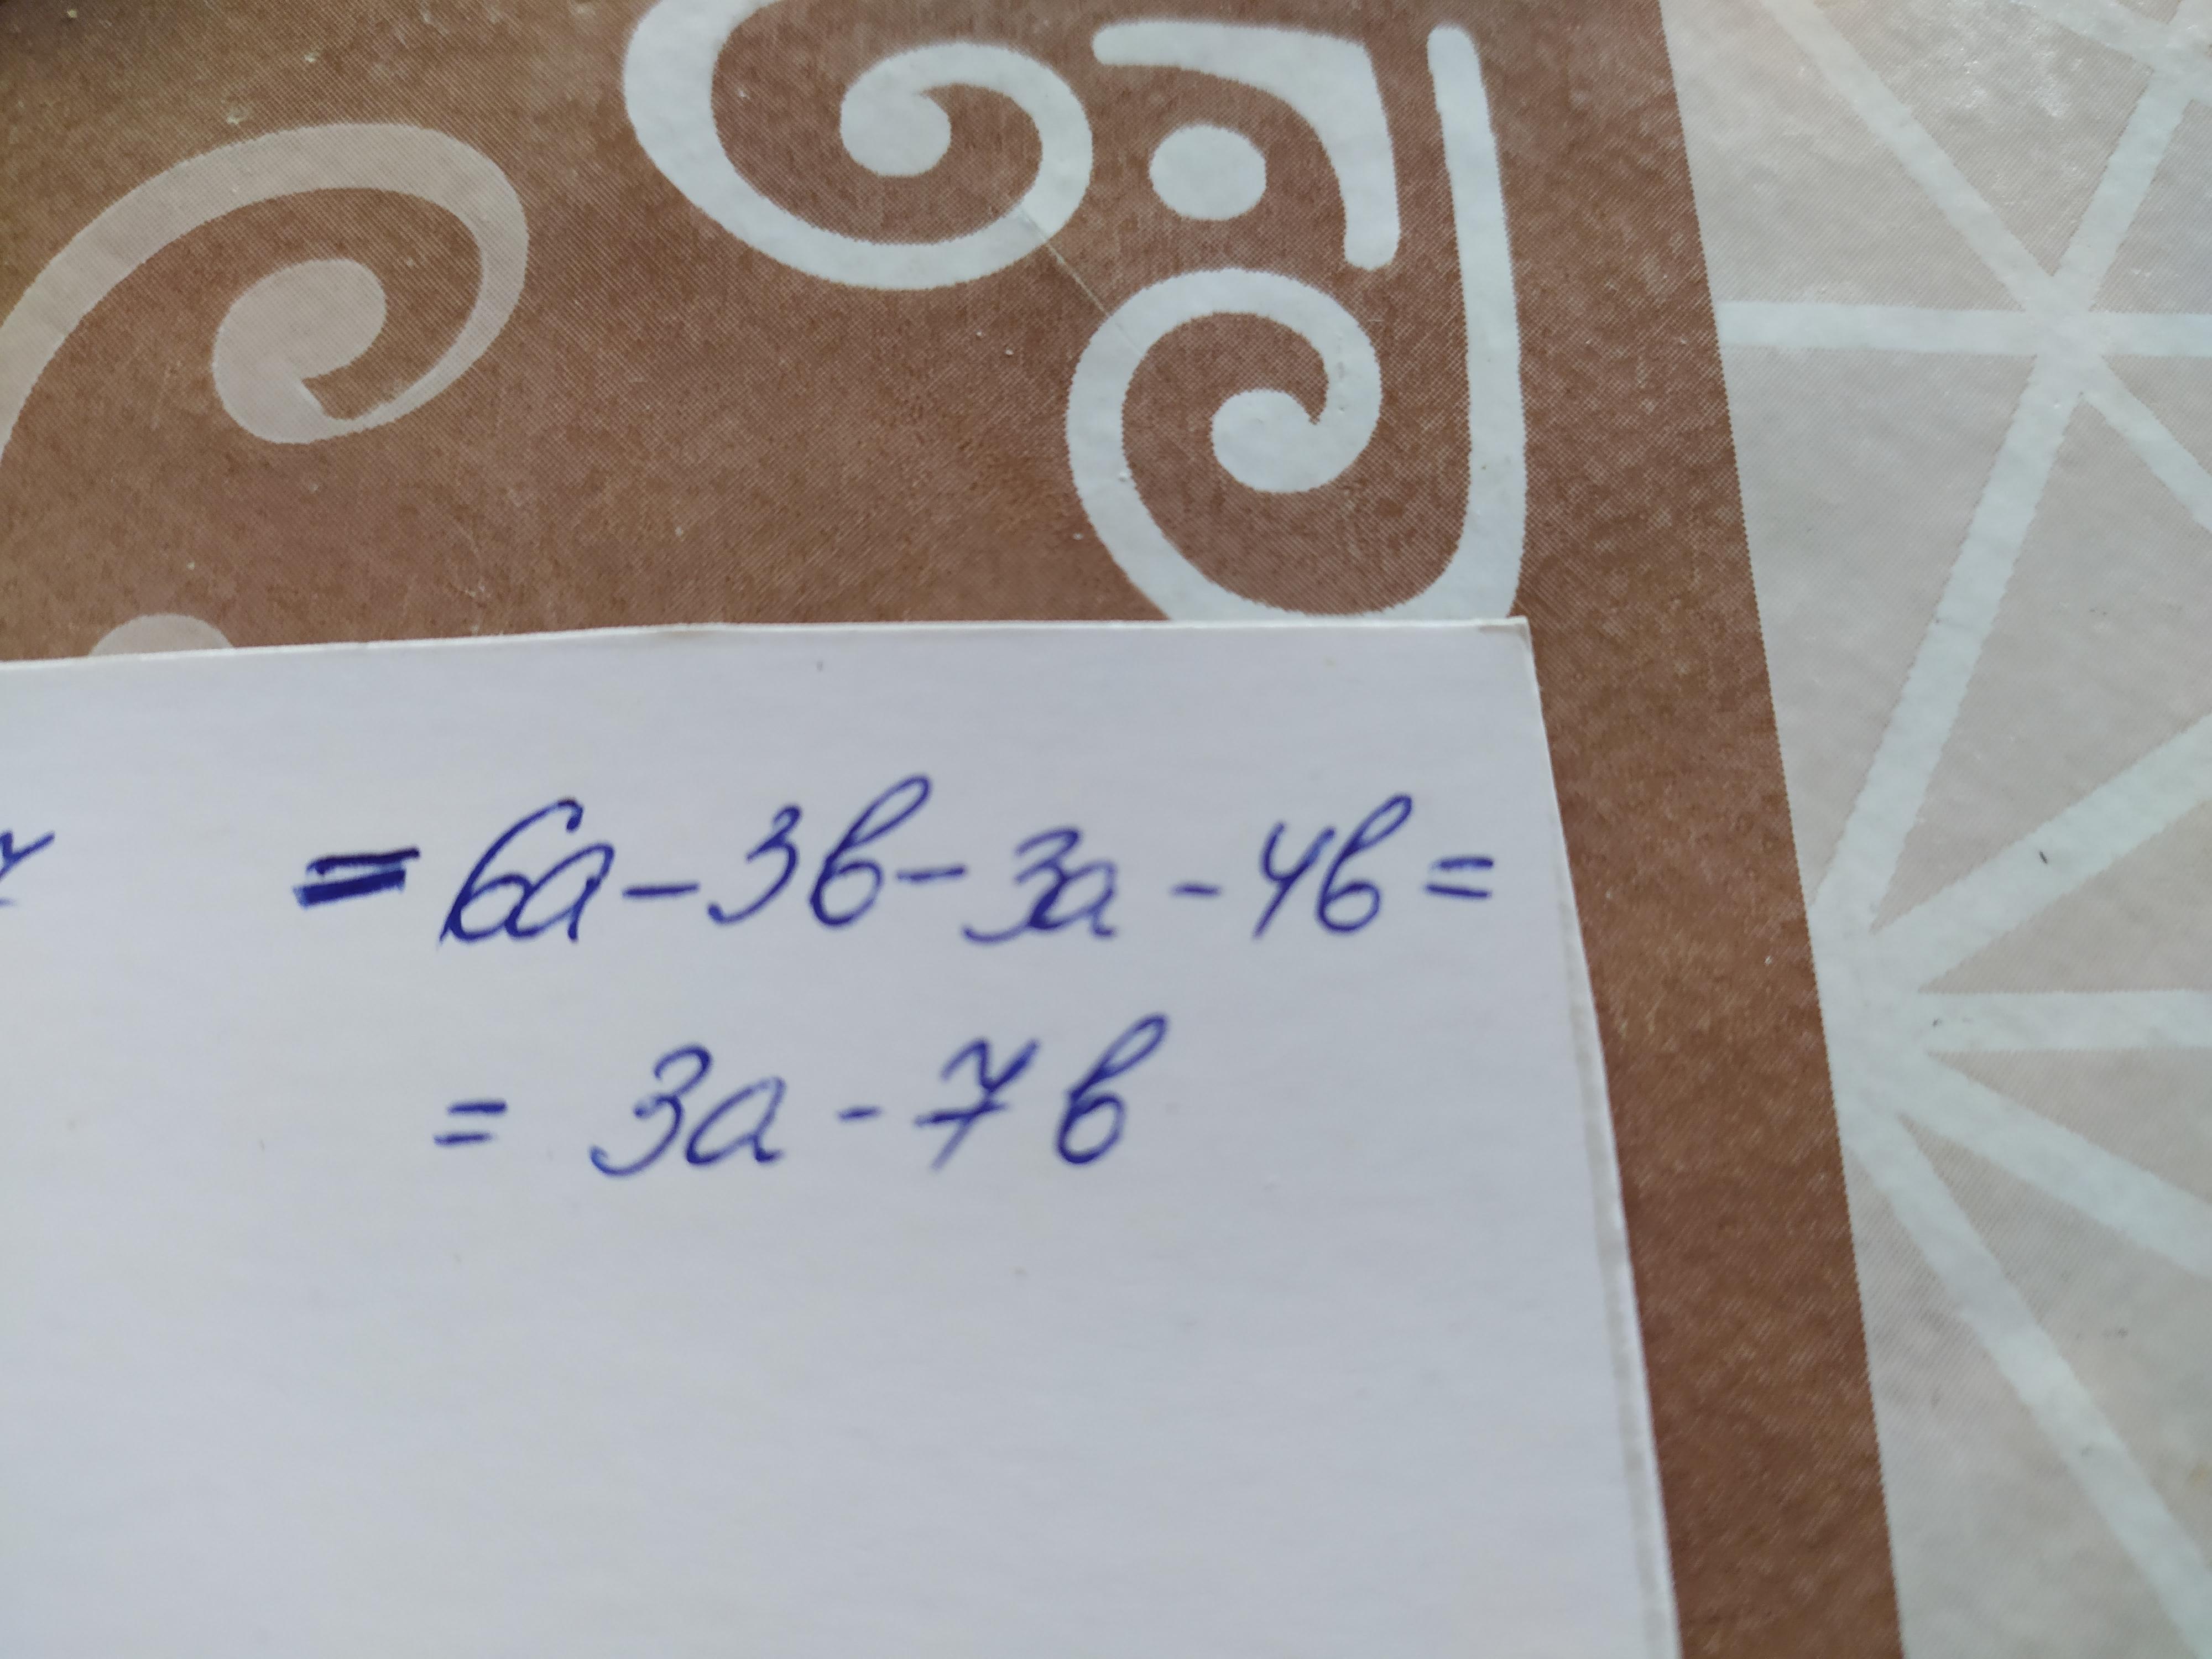 = 6a - 3b - 3a - 4b =
= 3a - 7b